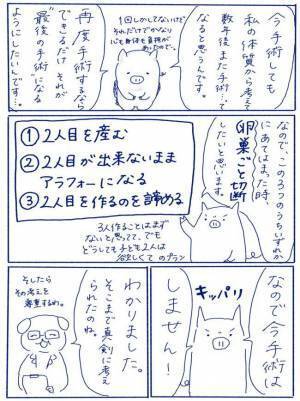 今手術しても
私の体質から考えて
数年後また手術…って
なると思うんです。
1回しかしてないけど
それだけでかなり
心も身体も負担が
あったので…
再度手術するなら
できるだけ それが
"最後の手術"になる
ようにしたいんです…
なので、この3つのうちいずれか
にあてはまった時、
卵巣ごと切断
したいと思います。
①2人目を産む
②2人目が出来ないまま
アラフォーになる
③2人目を作るのを諦める
3人作ることはまず
ないと思ってて、でも
どうしても子ども2人は
欲しくて のプラン
なので今手術は
しません!
キッパリ
わかりました。
そこまで真剣に考え
られたのね。
そしたら
その考えを
尊重するわ。